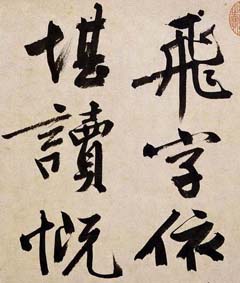 飛字依
堪讀慨